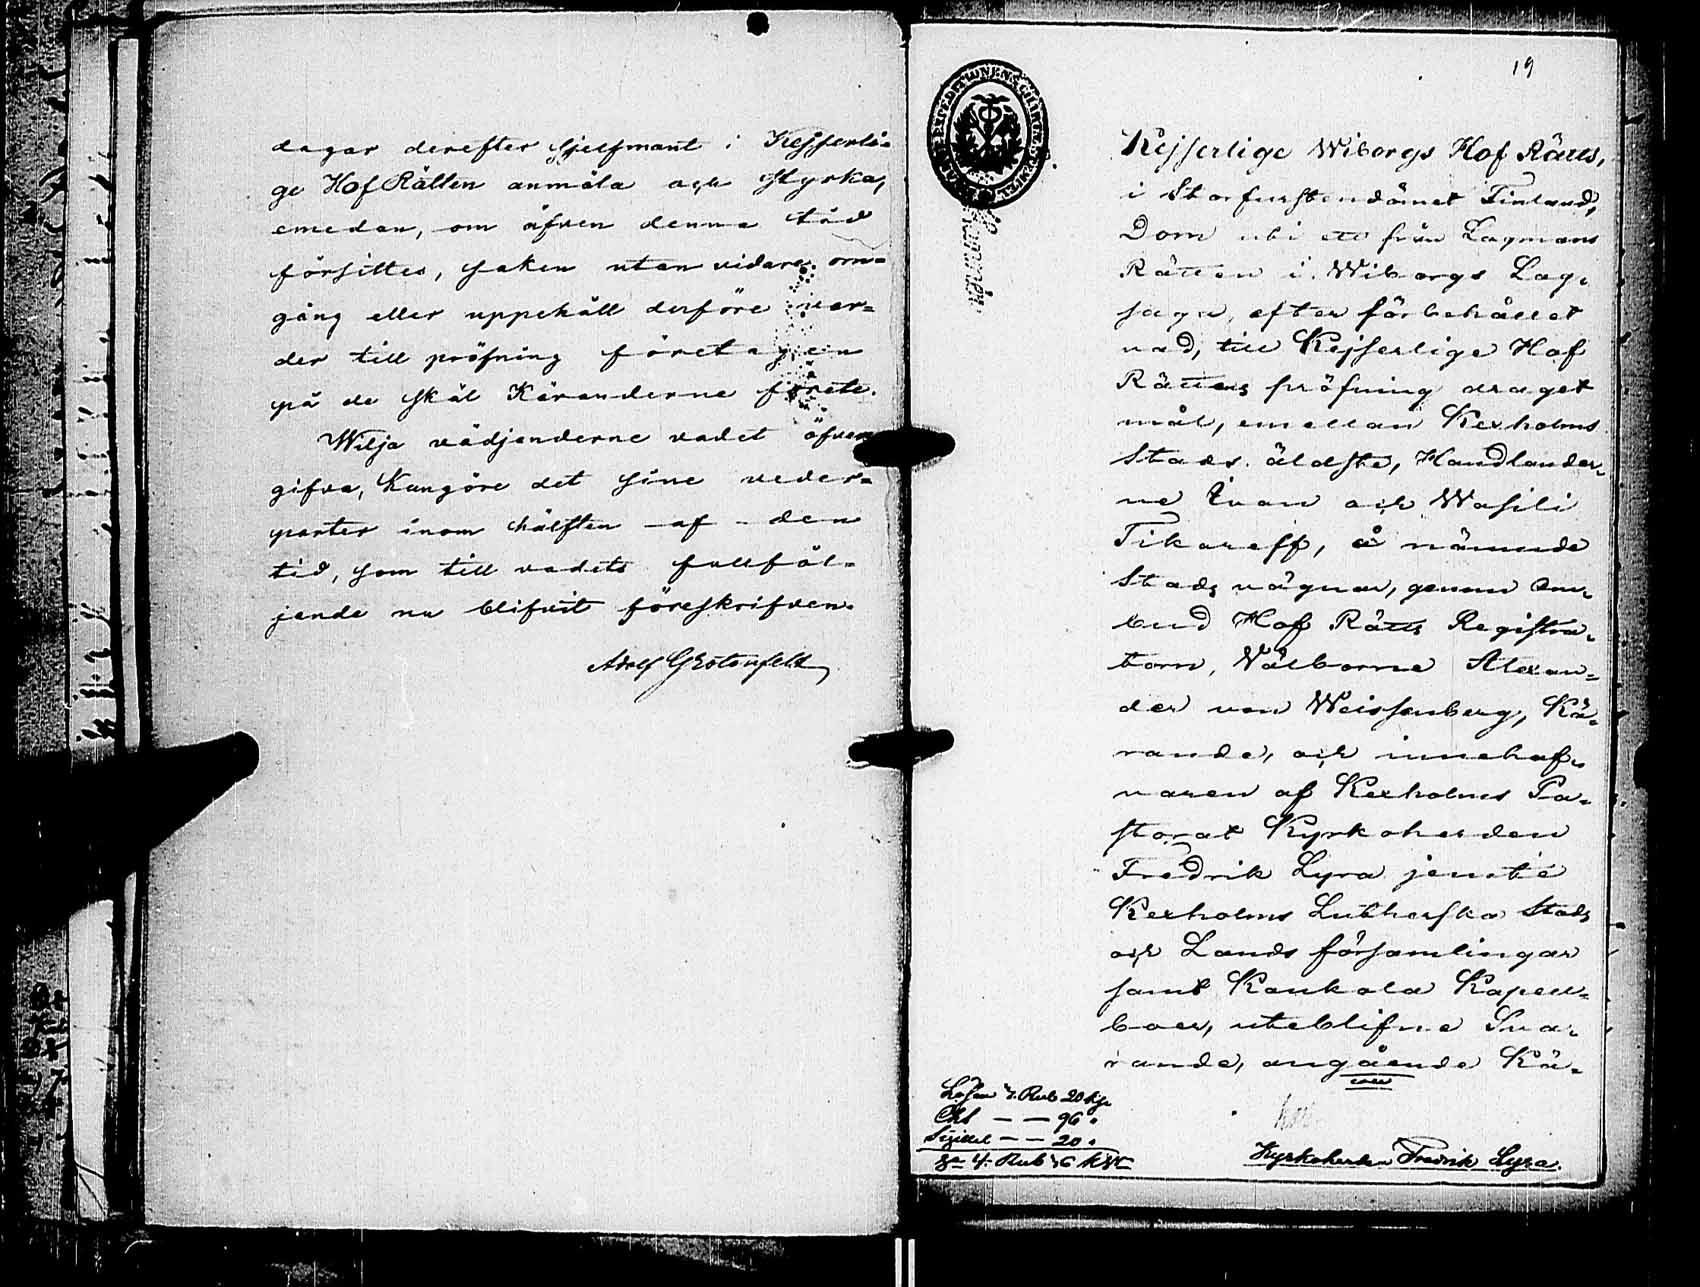 dagar derefter sjelfmant i Kejserli-
ge Hof Rätten anmäla och styrka,
emedan, om äfven denna tid
försittes, saken utan vidare om-
gång eller uppehåll derföre var-
der till pröfning företagen
på de skäl Käranderne förete.
Wilja vädjanderne vadet öfver
gifva, Kungöre det sine veder-
parter inom hälften af den
tid, som till vadets fullföl-
jande nu blifvit föreskrifven.
Adolf Grotenfelt
19
Kejserlige Wiborgs Hof Rätts,
i Storfurstendömet Finland,
Dom uti ett från Lagmans
Rätten i Wiborgs Lag-
saga, efter förbehållet
vad, till Kejserlige Hof
Rättens pröfning draget
mål, emellan Kexholms
Stads äldste, Handlander-
ne Ivan och Wasili
Tikareff, å nämnde
Stads vägnar, genom Om-
bud Hof Rätts Registra-
torn, Välborne Alexan-
der von Weissenberg, Kä-
rande, och innehaf-
varen af Kexholms Pa-
storat Kyrkoherden
Fredrik Lyra jemte
Kexholms Lutherska Stads
och Lands församlingar
samt Kaukola Kapell-
boer, uteblifne Sva-
rande, angående Kä-
Lösen 3. Rub 20 kop
Cht — — 96.
Sigillet — — 20.
Sa 4. Rub 36 kop
Kyrkoherden Fredrik Lyra.